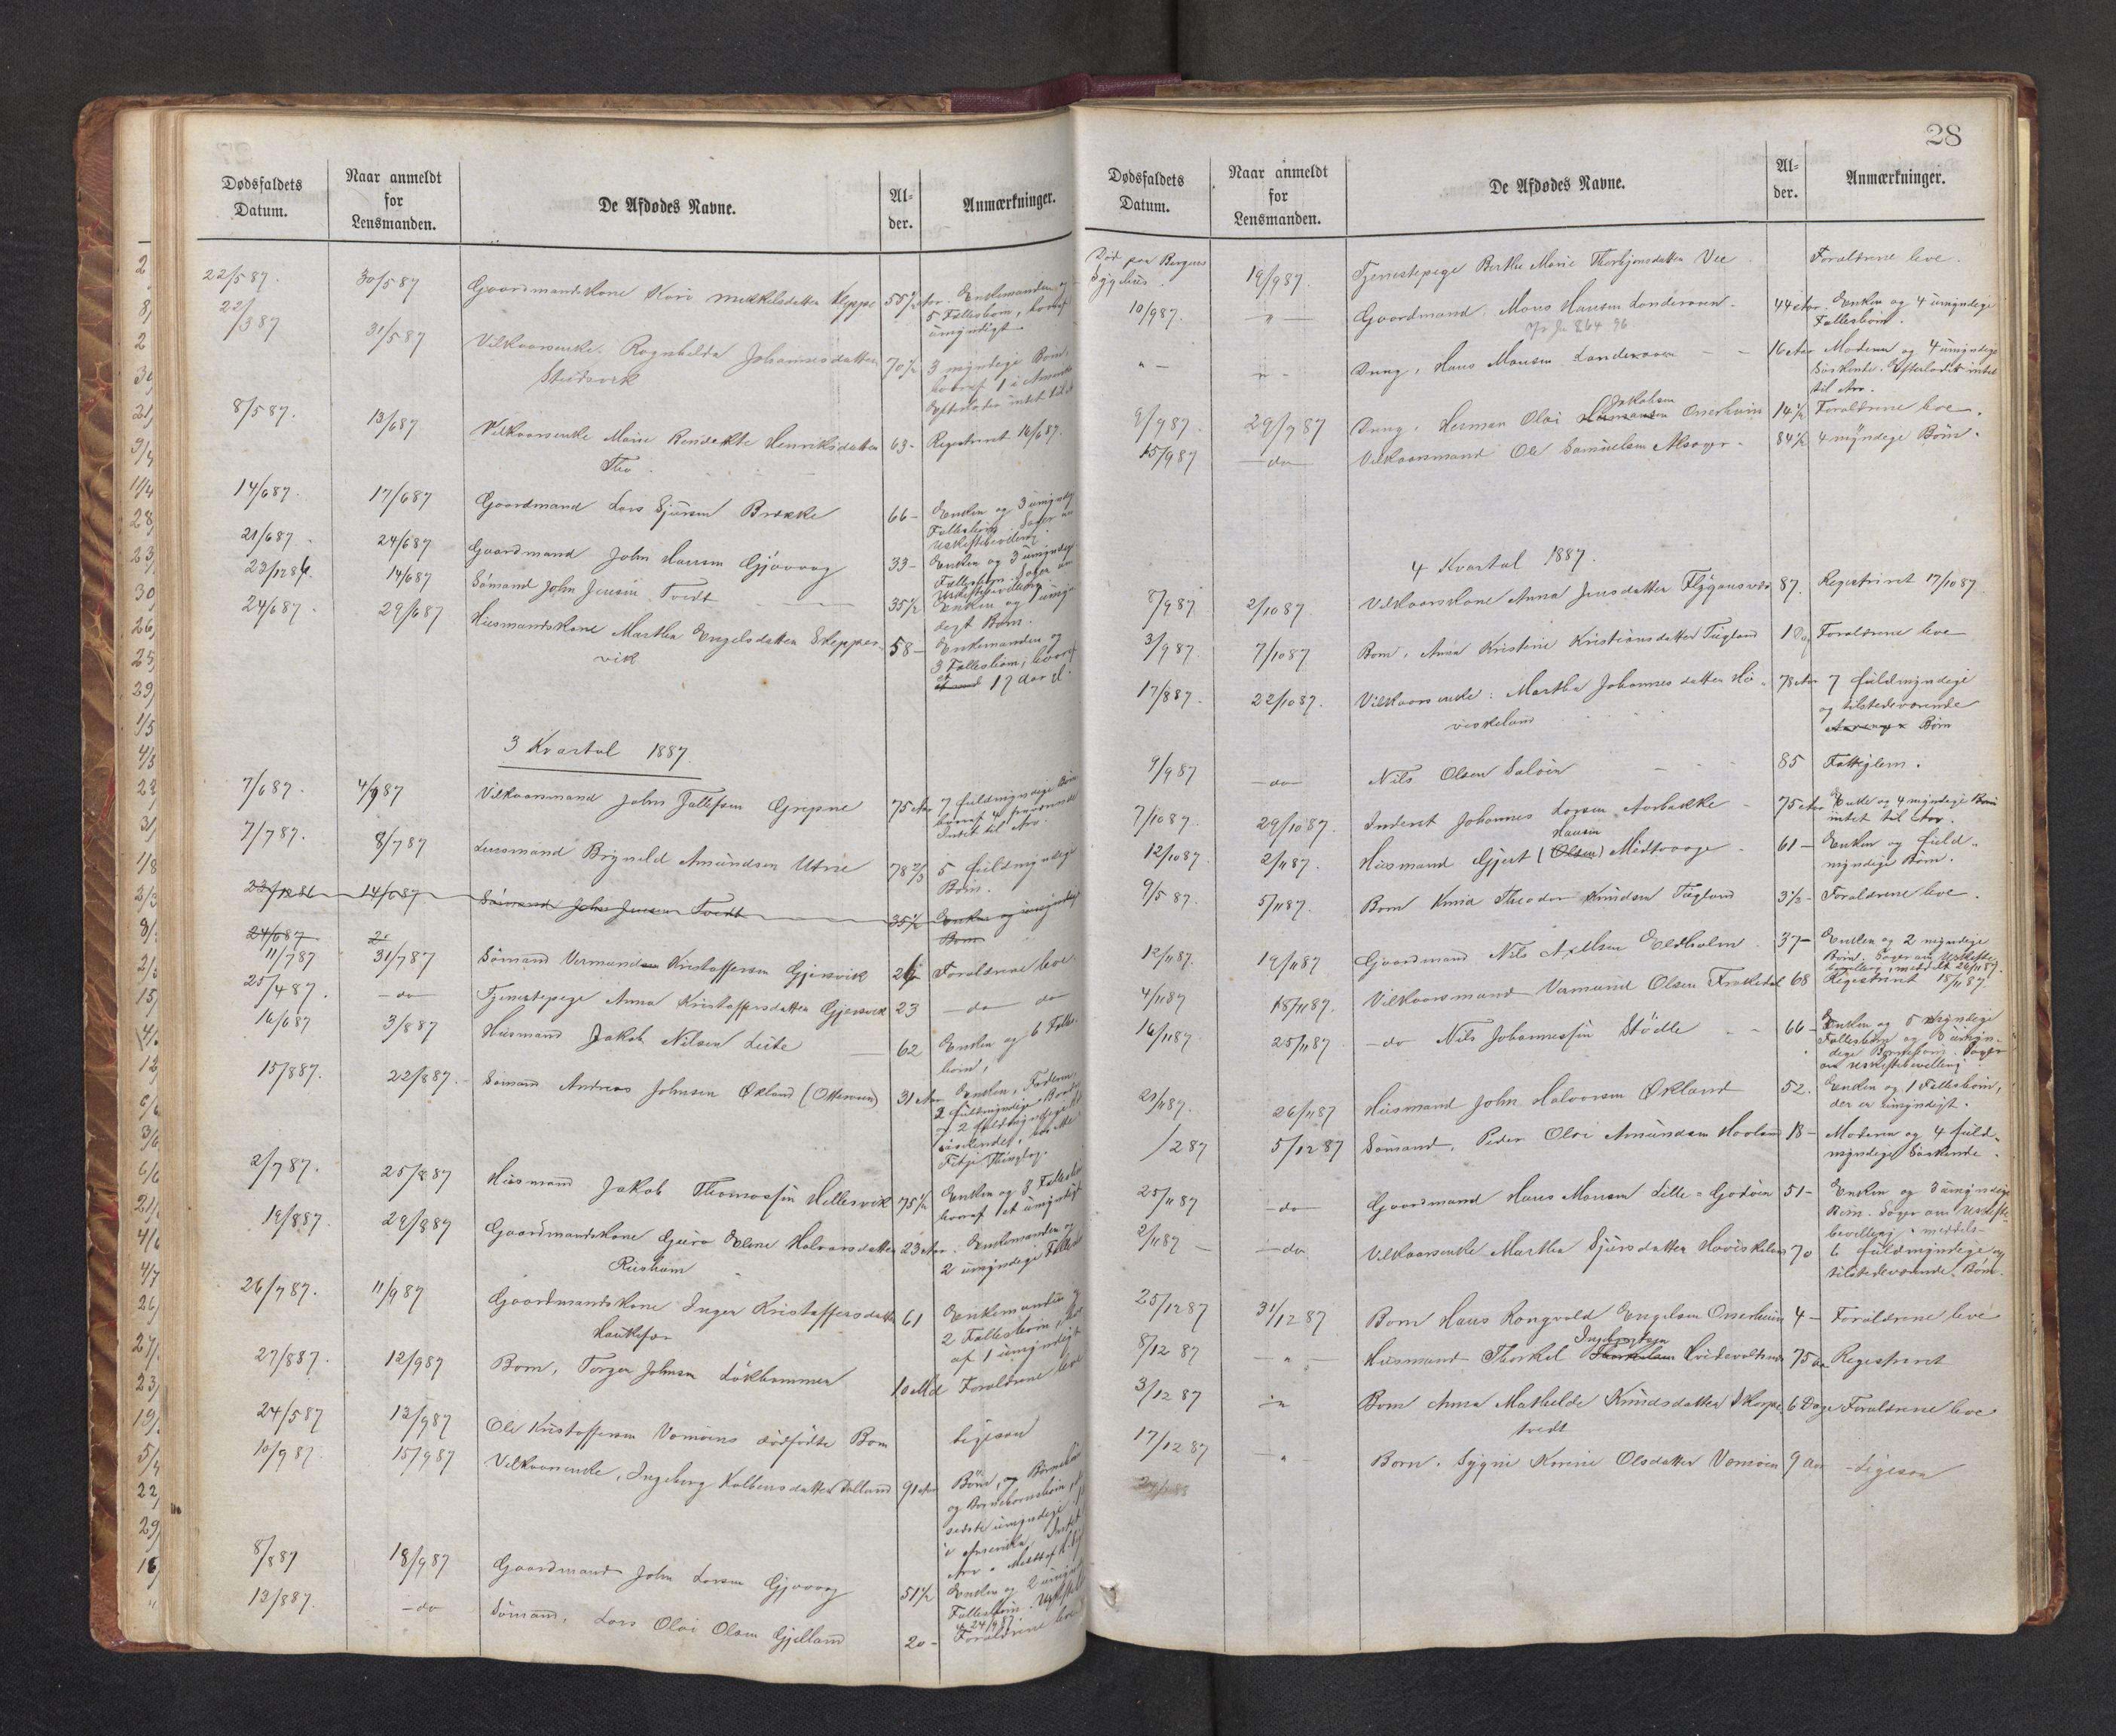 Dødsfaldets Datum. Naar anmeldt for Lensmanden. De Afdødes Navne. Al- der. Anmærkninger.
22/5 87. 30/5 87 Gaardmandskone Kari Mikkelsdatter Kleppe 55½ Aar. Enkemanden og
5 Fællesbørn, hvoraf
umyndigt
22/3 87 31/5 87 Vilkaarsenke Ragnhilda Johannesdatter 70½ 3 myndige Børn,
hvoraf 1 i Amerika
Efterlader intet til
8/5 87. 13/6 87 Vilkaarsenke Marie Bendikte Henriksdatter 63- Registreret 16/6 87.
Tho
14/6 87. 17/6 87 Gaardmand Lars Sjursen Brække 66- Enken og 3 umyndige
Fællesbørn. Søger om
Uskiftebevilling
21/6 87 - 24/6 87 Gaardmand John Hansen Gjøvaag 33- Enken og 3 umyndige
Fællesbørn. Søger om
Uskiftebevilling
23/12 86. 14/6 87 Sømand John Jensen Tvedt 35½ Enken og 1 umyn-
digt Barn.
24/6 87 - 29/6 87 Husmandskone Martha Engelsdatter Skeppes- 58- Enkemanden og
vik 3 Fællesbørn, hvoraf
17 Aar
3 Kvartal 1887.
7/6 87. 4/7 87 Vilkaarsmand John Tollefsen Gripne 75 Aar 7 fuldmyndige Børn
hvoraf 4
Intet til Arv.
7/7 87. 8/7 87 Lensmand Brynild Amundsen Utne 78 2/3 5 fuldmyndige
Børn.
23/12 86 14/6 87 Sømand John Jensen Tvedt 35½ Enken og umyndigt
Barn
24/6 87 2
11/7 87 31/7 87 Sømand Vermund Kristoffersen Gjersvik 26 Forældrene leve.
25/4 87. -do- Tjenestepige Anna Kristoffersdatter Gjersvik 23 -do- do
16/6 87 3/8 87 Husmand Jakob Nilsen Leite 62 Enken og 6 Fælles-
børn,
15/8 87. 22/8 87. - Sømand Andreas Johnsen Økland (Otterøen) 31 Aar Enken, Faderen,
2 fuldmyndige Brødre
og 2 fuldmyndige
Fitje Thinglag.
2/7 87. 25/8 87 Husmand Jakob Thomassen Hellesvik 75½ Enken og 8 Fællesbørn
hvoraf et umyndigt
19/8 87. 29/8 87 Gaardmandskone Guro Eline Halvorsdatter 23 Aar. Enkemanden og
2 umyndige Fælles
26/7 87. 11/9 87 Gaardmandskone Inger Kristoffersdatter 61 Enkemanden og
Haukefær 2 Fællesbørn, hvor-
af 1 umyndigt
27/8 87. 12/9 87 Barn, Torger Johnsen Løkhammer 10 Md Forældrene leve
24/5 87 12/9 87 Ole Kristoffersen Vomøens dødfødte Barn ligesaa
10/9 87. 15/9 87 Vilkaarsenke, Ingeborg Kolbensdatter Dalland 91 Aar Børn, og Børnebørn
og Børnebørnsbørn,
sidste umyndige
i Amerika, Intet
8/8 87 18/9 87 Gaardmand John Larsen Gjøvaag 51½ Enken og 2 umynd
Fællesbørn. Uskifteb
24/9 87.
12/8 87. -do Sømand, Lars Olai Olsen Gjelland 20- Forældrene leve
28
Dødsfaldets Datum. Naar anmeldt for Lensmanden. De Afdødes Navne. Al- der. Anmærkninger.
Død paa Bergens
Sygehus. 19/9 87. Tjenestepige Berthe Marie Thorbjørnsdatter Vee Forældrene leve.
10/9 87. -"- Gaardmand Mons Hansen Landeraaen 44 Aar. Enken og 4 umyndige
Fællesbørn.
" - " - Dreng, Hans Monsen Landeraaen - - 16 Aar Moderen og 4 umyndige
Søskende. Efterladt intet
til Arv.
9/9 87. 29/9 87 Dreng, Herman Olai Hermansen Jakobsen Onerheim 14½ Forældrene leve.
15/9 87 -do- Vilkaarsmand Ole Samuelsen Alsager - 84½ 4 myndige Børn.
4 Kvartal 1887.
8/9 87 2/10 87. Vilkaarskone Anna Jensdatter Flygansvær 87. Registreret 17/10 87
3/9 87. 7/10 87 Barn, Anna Kristine Kristiansdatter Tugland 1 Dag Forældrene leve
17/8 87. 22/10 87. Vilkaarsenke: Martha Johannesdatter Hø- 78 Aar 7 fuldmyndige
viskeland og tilstedeværende
Børn
9/9 87 -do- Nils Olsen Saløen - - 85 Fattiglem.
7/10 87. 29/10 87. Inderst Johannes Larsen Aarbakke - 75 Aar Enke og 4 myndige Børn
intet til Arv.
12/10 87. 2/11 87. Husmand Gjert (Olsen) Hansen Midtvaage - 61- Enken og fuld-
myndige Børn.
9/5 87. 5/11 87. Barn Knud Theodor Knudsen Tugland 3½- Forældrene leve.
12/11 87. 19/11 87 Gaardmand Nils Axelsen Eldholm 37- Enken og 2 myndige
Børn. Søger om Uskifte-
bevilling, meddelt 26/11 87.
4/11 87 18/11 87. Vilkaarsmand Vermund Olsen Frøkedal 68 Registreret 18/11 87.
16/11 87. 25/11 87 -do Nils Johannessen Stødle - 66- Enken og 5 myndige
Fællesbørn og 3 umyn-
dige Børnebørn. Søger
om Uskiftebevilling
21/11 87. 26/11 87 Husmand John Halvorsen Økland 52. Enken og 1 Fællesbarn,
der er umyndigt.
/2 87 5/12 87 Sømand, Peder Olai Amundsen Hovland 18- Moderen og 4 fuld-
myndige Søskende.
25/11 87 -do- Gaardmand Hans Monsen Lille-Godøen 51- Enken og 3 umyndige
Børn. Søger om Uskifte-
bevilling meddels-
2/11 87 - -do. Vilkaarsenke Martha Sjursdatter Høviskeland 70 6 fuldmyndige og
tilstedeværende Børn.
25/12 87 31/12 87 Barn Hans Rongvald Engelsen Onerheim 4- Forældrene leve
8/12 87 - " - Husmand Thorkel Thorkelsen Ingebrigtsen 75 Aar Registreret
3/12 87 " Barn Anna Mathilde Knudsdatter Skorpe- 6 Dage Forældrene leve
tvedt
17/12 87 " - Barn, Sygni Korine Olsdatter Vomøen 9 Aar -Ligesaa